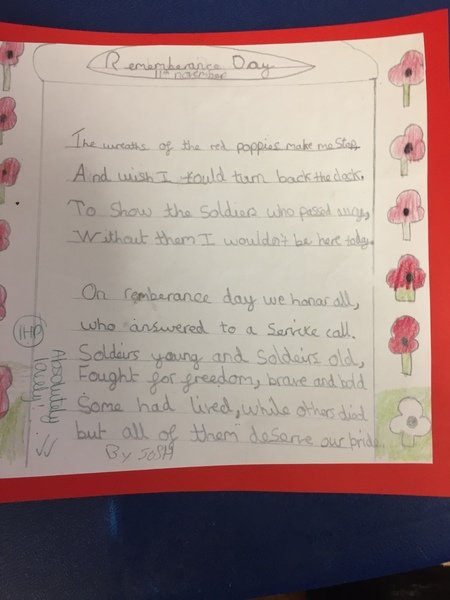 Rememberance Day
11th november
The wreaths of the red poppies make me stop,
And wish I could turn back the clock.
To show the soldiers who passed away,
Without them I wouldn't be here today.
On remberance day we honar all,
who answered to a Service call.
Soldeirs young and soldeirs old,
Fought for freedom, brave and bold
Some had lived, while others died
but all of them deserve our pride.
By JOSH
1HP
Absolutely
lovely!